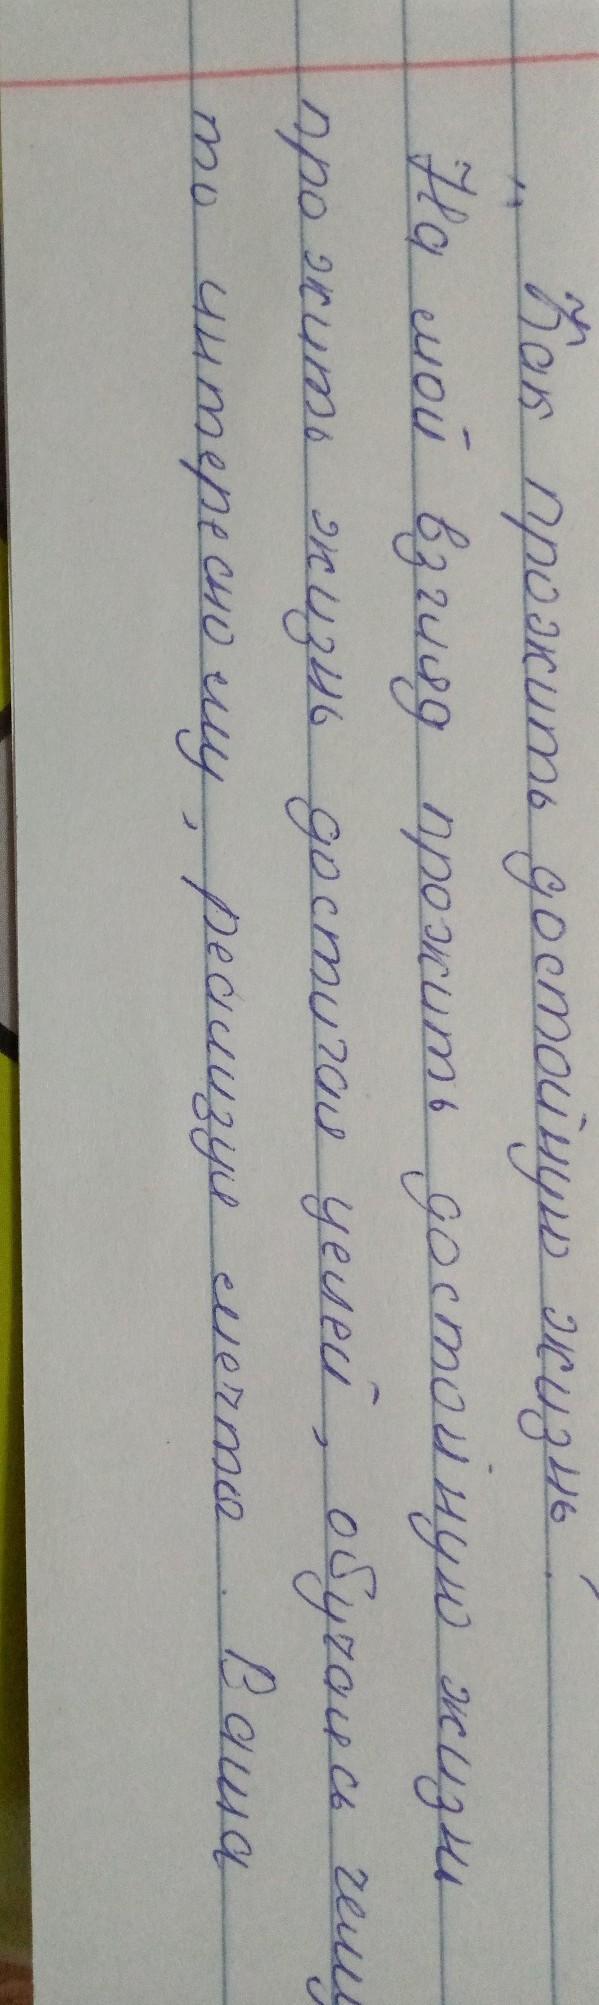 „Как прожить достойную жизнь.
На мой взгляд прожить достойную жизнь
прожить жизнь достигая целей, обучаясь чему
то интересному, реализуя мечты. Ваша